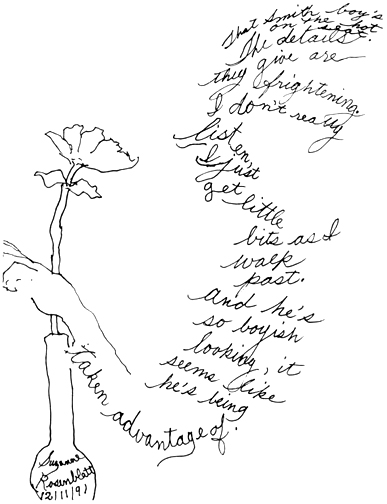 That Smith boy's
on the hot
seat.
The details
they give are
frightening
I don't really
listen,
I just
get little
bits as I
walk
past.
and he's
so boyish
looking, it
seems like
he's being
taken advantage of.
Suzanne
Rosenblatt
12/11/91